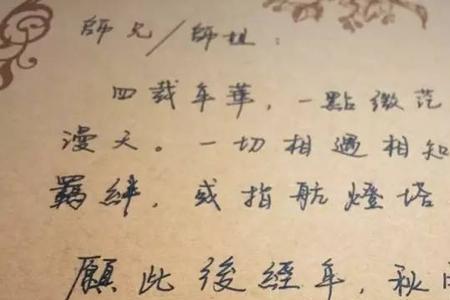 師兄/師姐：
四載年華，一點微
漫天。一切相遇相知
羈絆，或指航燈塔
願此後經年，秋